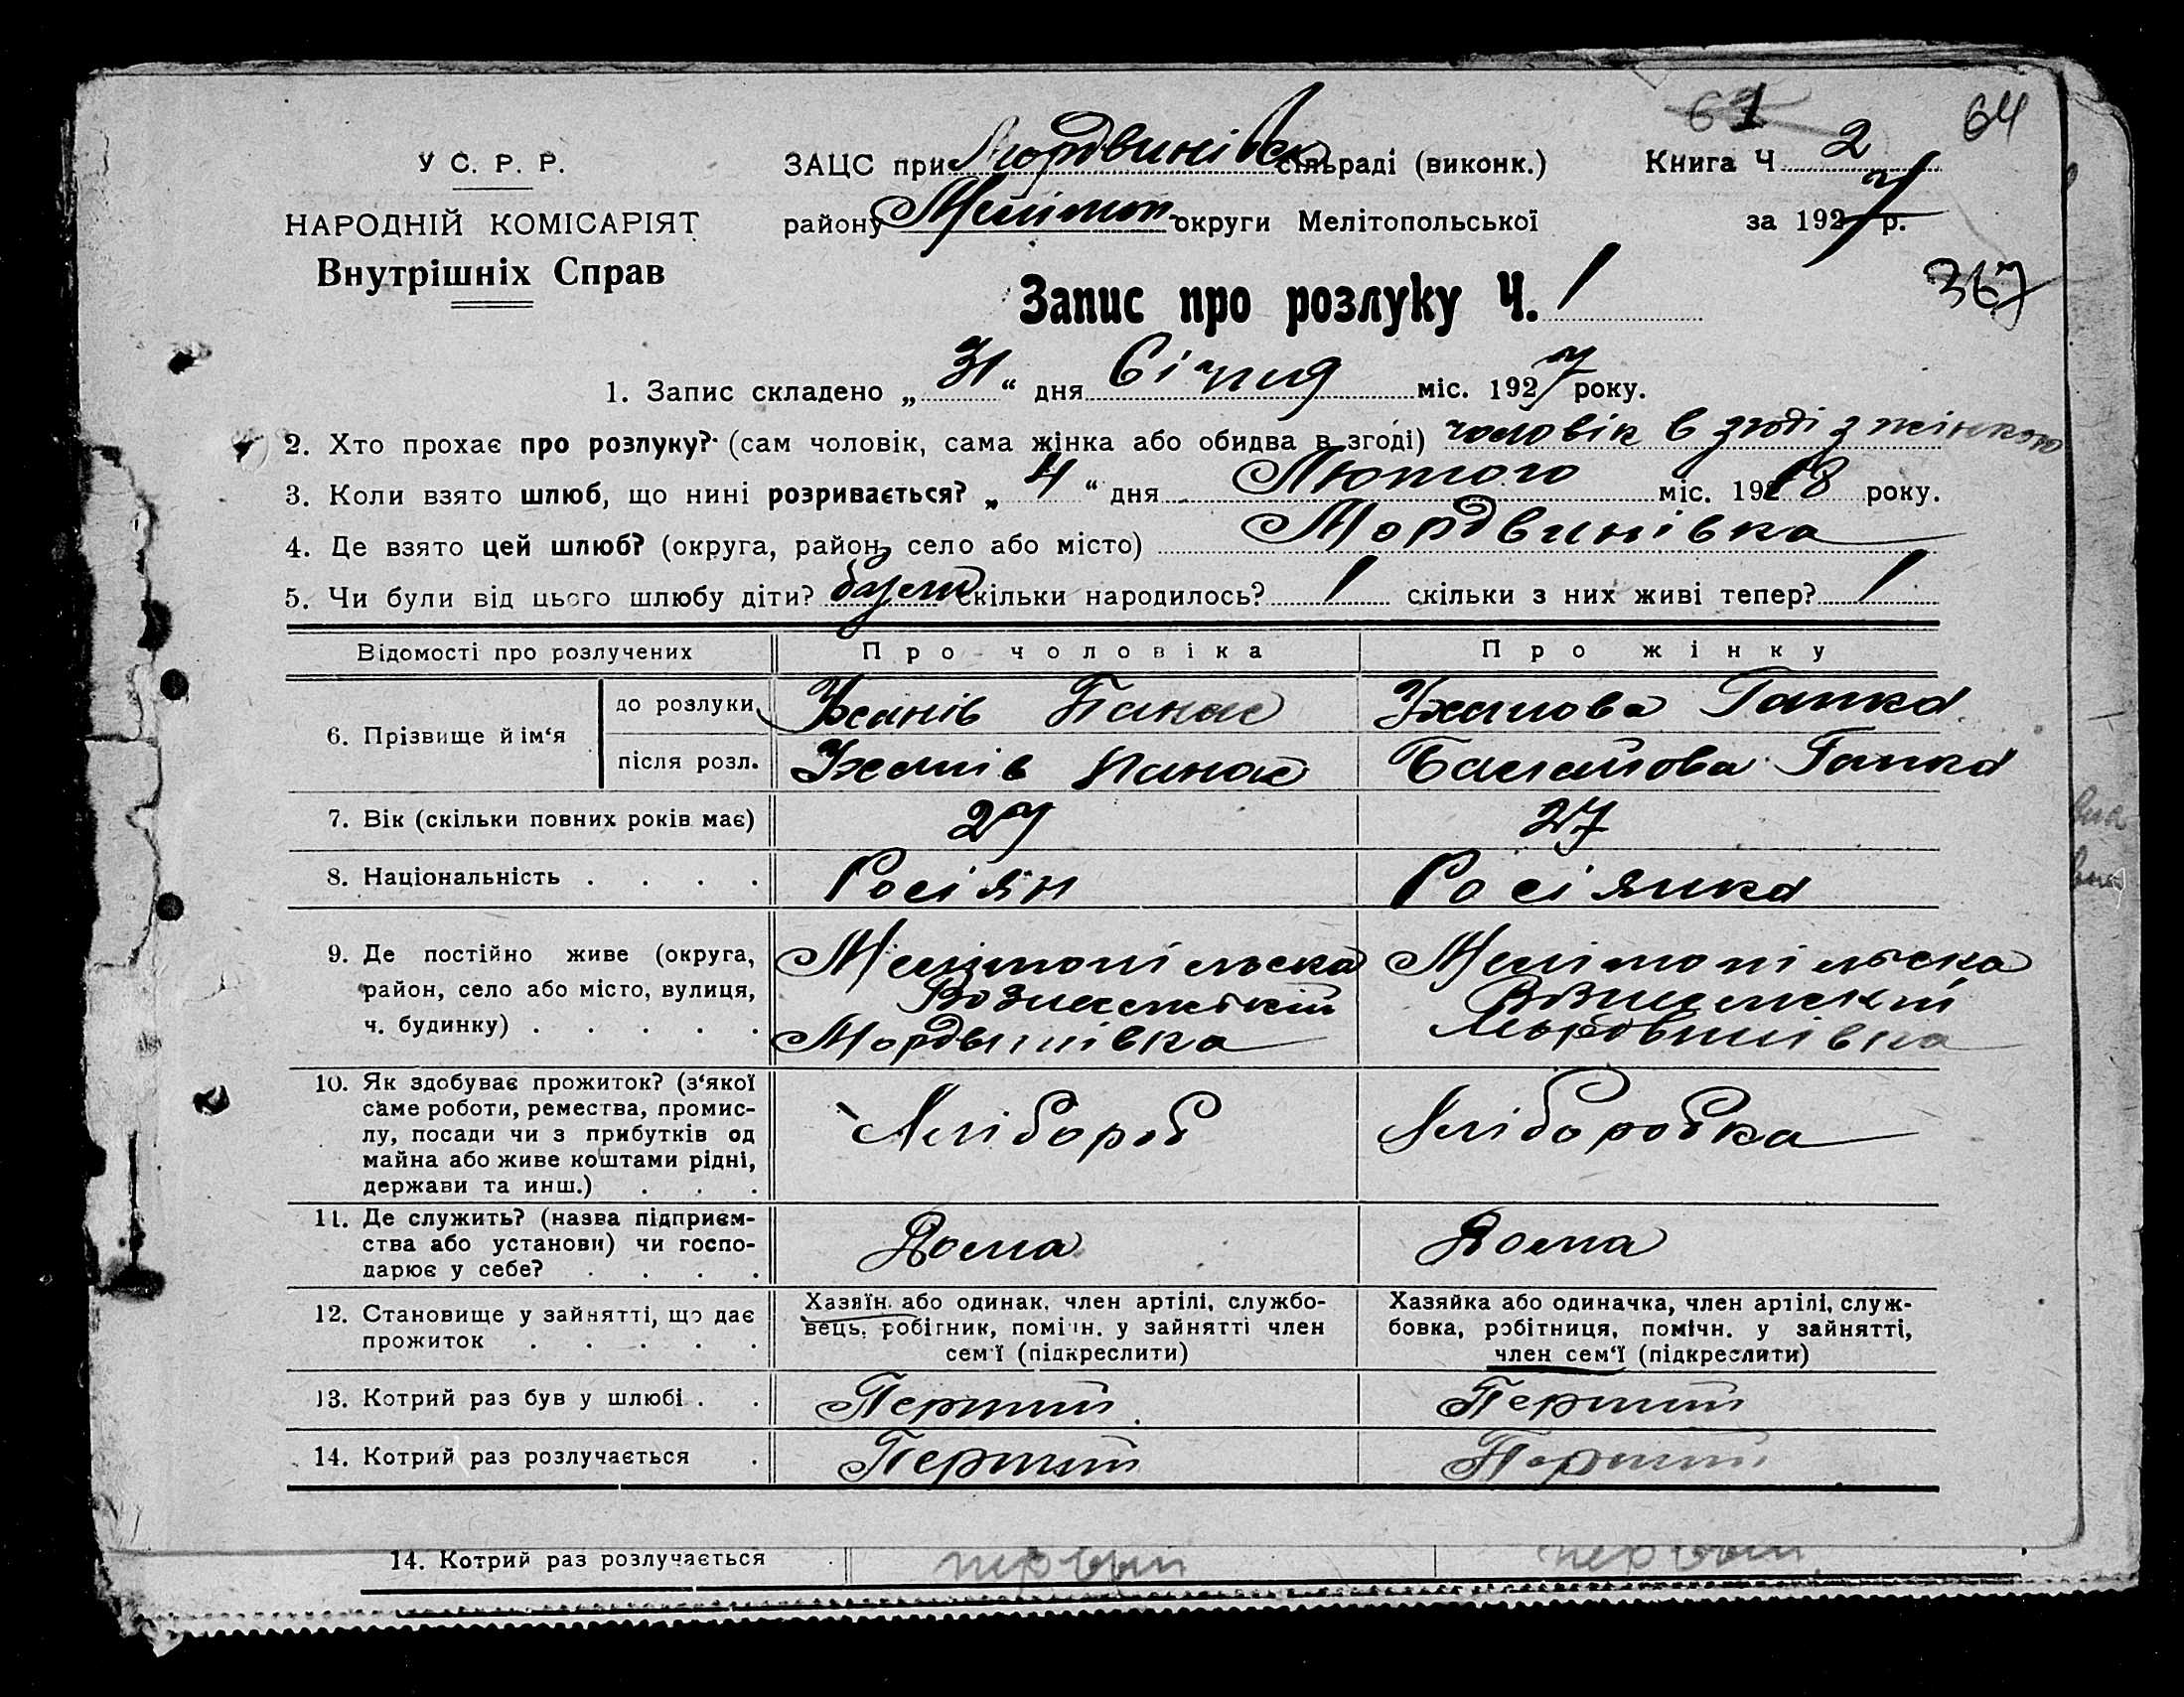 61 64
У С. Р. Р.
НАРОДНІЙ КОМІСАРІЯТ
Внутрішніх Справ
ЗАЦС при Мордвинівск сільраді (виконк.)
Книга Ч 2
району Мелітоп округи Мелітопольської
за 1927 р.
367
Запис про розлуку Ч. 1
1. Запис складено „ 31 “ дня Січня міс. 1927 року.
2. Хто прохає про розлуку? (сам чоловік, сама жінка або обидва в згоді) чоловік в згоді з жінкою
3. Коли взято шлюб, що нині розривається? „ 4 “ дня Лютого міс. 1918 року.
4. Де взято цей шлюб? (округа, район, село або місто) Мордвинівка
5. Чи були від цього шлюбу діти? були скільки народилось? 1 скільки з них живі тепер? 1
Відомості про розлучених Про чоловіка Про жінку
6. Прізвище й ім‘я
до розлуки Панас Ганка
після розл. Панас Ганка
7. Вік (скільки повних років має) 27 27
8. Національність . . . . Росіян Росіянка
9. Де постійно живе (округа, район, село або місто, вулиця, ч. будинку) . . . . .
Мелітопільска Мелітопільска
Мордвинівка Мордвинівка
10. Як здобуває прожиток? (з‘якої
саме роботи, ремества, промис-
лу, посади чи з прибутків од
майна або живе коштами рідні,
держави та инш.) . . .
Хлібороб Хліборобка
11. Де служить? (назва підприєм-
ства або установи) чи госпо-
дарює у себе? . . . .
Дома Дома
12. Становище у зайнятті, що дає
прожиток . . . . .
Хазяїн або одинак, член артілі, службо-
вець, робігник, помічн. у зайнятті член
сем‘ї (підкреслити)
Хазяйка або одиначка, член артілі, служ-
бовка, робітниця, помічн. у зайнятті,
член сем‘ї (підкреслити)
13. Котрий раз був у шлюбі . . Перший Перший
14. Котрий раз розлучається . Перший Перший
14. Котрий раз розлучається . первый первый